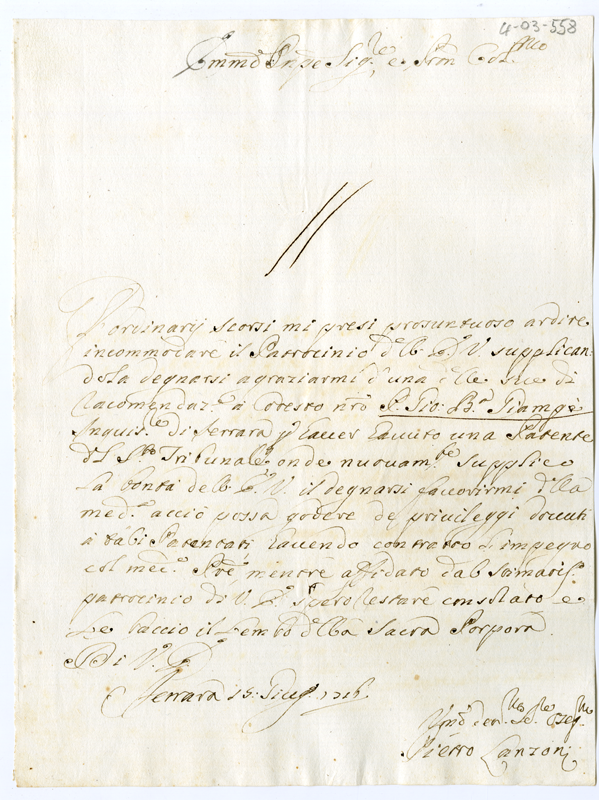 4-03-558
Emmo Prnpe Sigre e Prôn Colmo
Ordinarij scorsi mi presi prosuntuoso ardire
incommodare il Patrocinio dell' E. V. supplican:
dola degnarsi agraziarmi d'una delle sue di
Racomendaz.e à Cotesto nrô P. Gio: Ba Giampè
Inquis.re di Ferrara p haver havuto una Patente
del Sto Tribunale, onde nuovam.te supplico
la bontà dell' E. V. il degnarsi favorirmi della
med.a acciò possa godere de privileggi dovuti
à tali Patentati havendo contratto l'impegno
col med.o Pre mentre affidato dal stimatis.o
patrocinio di V. E. spero restare consolato e
le baccio il lembo della Sacra Porpora
Di V. E.
Ferrara 15: Giug.o 1716
Umo dev.mo Se.re oseq.mo
Pietro Lanzoni